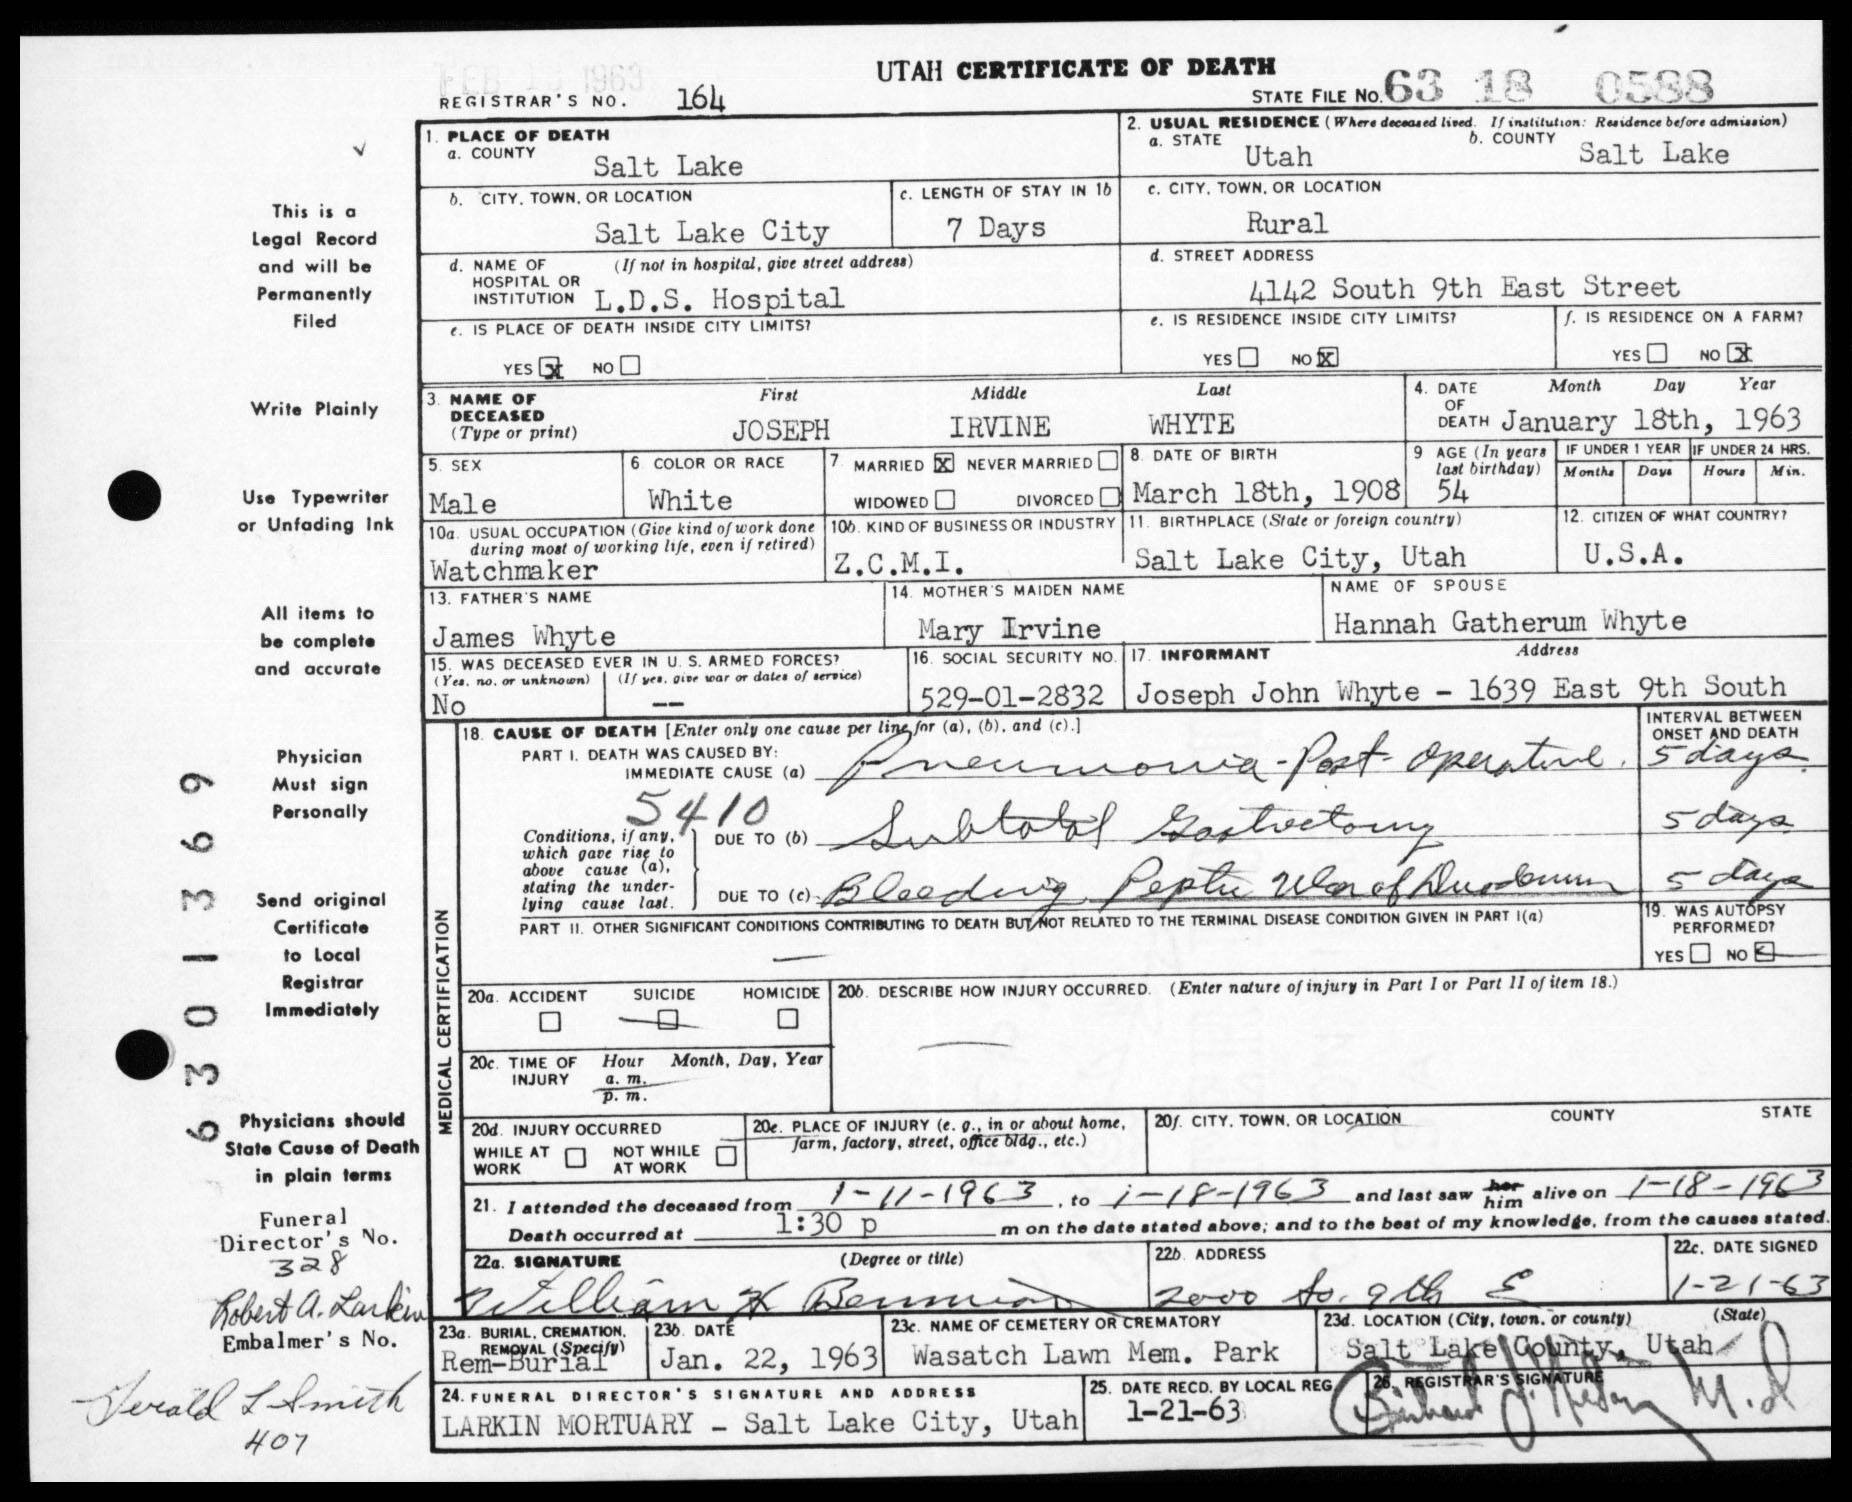 FEB 1963
UTAH CERTIFICATE OF DEATH
REGISTRAR'S NO. 164
STATE FILE NO. 63 18 0588
1. PLACE OF DEATH
a. COUNTY
Salt Lake
2. USUAL RESIDENCE (Where deceased lived. If institution: Residence before admission)
a. STATE Utah b. COUNTY Salt Lake
b. CITY, TOWN, OR LOCATION
Salt Lake City
c. LENGTH OF STAY IN 1b
7 Days
c. CITY, TOWN, OR LOCATION
Rural
d. NAME OF HOSPITAL OR INSTITUTION (If not in hospital, give street address)
L.D.S. Hospital
d. STREET ADDRESS
4142 South 9th East Street
e. IS PLACE OF DEATH INSIDE CITY LIMITS?
YES X NO
e. IS RESIDENCE INSIDE CITY LIMITS?
YES NO X
f. IS RESIDENCE ON A FARM?
YES NO X
3. NAME OF DECEASED (Type or print)
First Middle Last
JOSEPH IRVINE WHYTE
4. DATE OF DEATH Month Day Year
January 18th, 1963
5. SEX
Male
6. COLOR OR RACE
White
7. MARRIED X NEVER MARRIED
WIDOWED DIVORCED
8. DATE OF BIRTH
March 18th, 1908
9 AGE (In years last birthday)
54
IF UNDER 1 YEAR
Months Days
IF UNDER 24 HRS.
Hours Min.
10a. USUAL OCCUPATION (Give kind of work done during most of working life, even if retired)
Watchmaker
10b. KIND OF BUSINESS OR INDUSTRY
Z.C.M.I.
11. BIRTHPLACE (State or foreign country)
Salt Lake City, Utah
12. CITIZEN OF WHAT COUNTRY?
U.S.A.
13. FATHER'S NAME
James Whyte
14. MOTHER'S MAIDEN NAME
Mary Irvine
NAME OF SPOUSE
Hannah Gatherum Whyte
15. WAS DECEASED EVER IN U.S. ARMED FORCES?
(Yes, no, or unknown) (If yes, give war or dates of service)
No --
16. SOCIAL SECURITY NO.
529-01-2832
17. INFORMANT Address
Joseph John Whyte - 1639 East 9th South
MEDICAL CERTIFICATION
18. CAUSE OF DEATH [Enter only one cause per line for (a), (b), and (c).]
INTERVAL BETWEEN ONSET AND DEATH
PART I. DEATH WAS CAUSED BY:
IMMEDIATE CAUSE (a) Pneumonia - Post-Operative. 5 days.
5410
Conditions, if any, which gave rise to above cause (a), stating the underlying cause last.
DUE TO (b) Subtotal Gastrectomy 5 days
DUE TO (c) Bleeding Peptic Ulcer of Duodenum 5 days
PART II. OTHER SIGNIFICANT CONDITIONS CONTRIBUTING TO DEATH BUT NOT RELATED TO THE TERMINAL DISEASE CONDITION GIVEN IN PART I(a)
—
19. WAS AUTOPSY PERFORMED?
YES NO
20a. ACCIDENT SUICIDE HOMICIDE
20b. DESCRIBE HOW INJURY OCCURRED. (Enter nature of injury in Part I or Part II of item 18.)
20c. TIME OF INJURY Hour Month, Day, Year
a. m.
p. m.
20d. INJURY OCCURRED
WHILE AT WORK NOT WHILE AT WORK
20e. PLACE OF INJURY (e. g., in or about home, farm, factory, street, office bldg., etc.)
20f. CITY, TOWN, OR LOCATION COUNTY STATE
21. I attended the deceased from 1-11-1963, to 1-18-1963 and last saw her him alive on 1-18-1963
Death occurred at 1:30 p m on the date stated above; and to the best of my knowledge, from the causes stated.
22a. SIGNATURE (Degree or title)
William K Bennion
22b. ADDRESS
2000 So. 9th E
22c. DATE SIGNED
1-21-63
23a. BURIAL, CREMATION, REMOVAL (Specify)
Rem-Burial
23b. DATE
Jan. 22, 1963
23c. NAME OF CEMETERY OR CREMATORY
Wasatch Lawn Mem. Park
23d. LOCATION (City, town, or county) (State)
Salt Lake County, Utah
24. FUNERAL DIRECTOR'S SIGNATURE AND ADDRESS
LARKIN MORTUARY - Salt Lake City, Utah
25. DATE RECD. BY LOCAL REG.
1-21-63
26. REGISTRAR'S SIGNATURE
M.d
This is a
Legal Record
and will be
Permanently
Filed
Write Plainly
Use Typewriter
or Unfading Ink
All items to
be complete
and accurate
Physician
Must sign
Personally
Send original
Certificate
to Local
Registrar
Immediately
Physicians should
State Cause of Death
in plain terms
Funeral
Director's No.
328
Robert A. Larkin
Embalmer's No.
Gerald L Smith
407
6301369